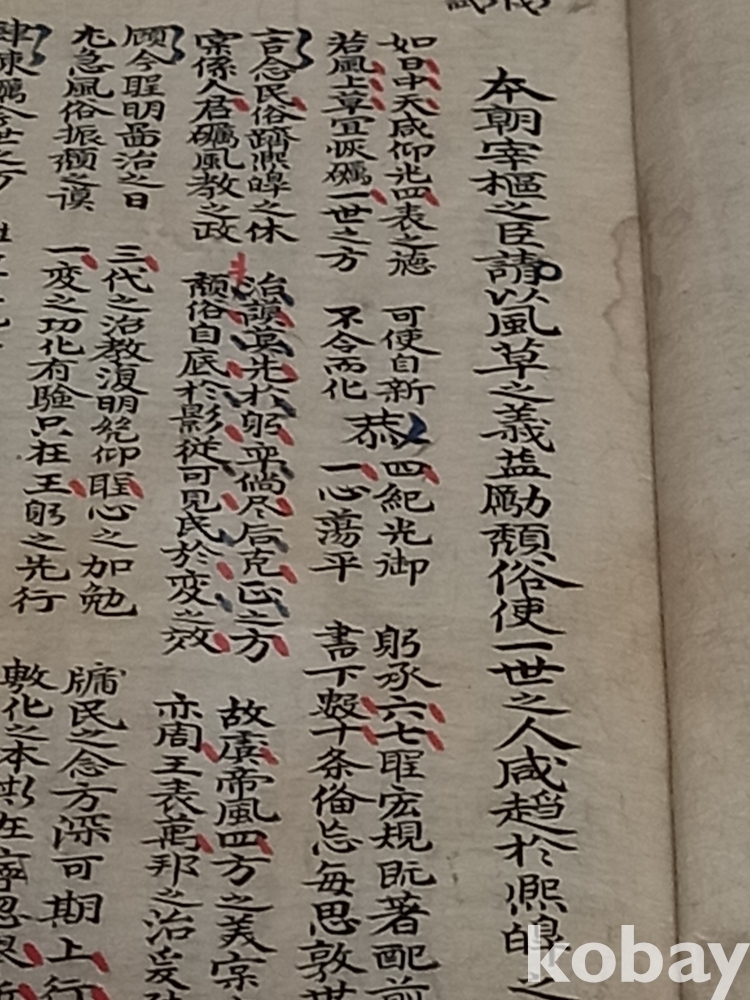 本朝宰樞之臣請以風草之義益勵頹俗使一世之人咸趨於熙皥之
如日中天咸仰光四表之德 可使自新 四紀光御 躬承六七聖宏規旣著配前
若風上草宜恢礪一世之方 不令而化 恭 一心蕩平 書下數十条俻忘每思敦世
言念民俗躋熙皥之休 治謨莫先於躬率倘尽后克正之方 故虞帝風四方之美寔
寔係人君礪風教之政 頹俗自底於影從可見民於変之效 亦周王表萬邦之治爰
顧今聖明啚治之日 三代之治教復明絶仰聖心之加勉 牖民之念方深可期上行
尤急風俗振頹之謨 一変之功化有驗只在王躬之先行 敷化之本 在寧忍
肆陳礪今世之方
kobay